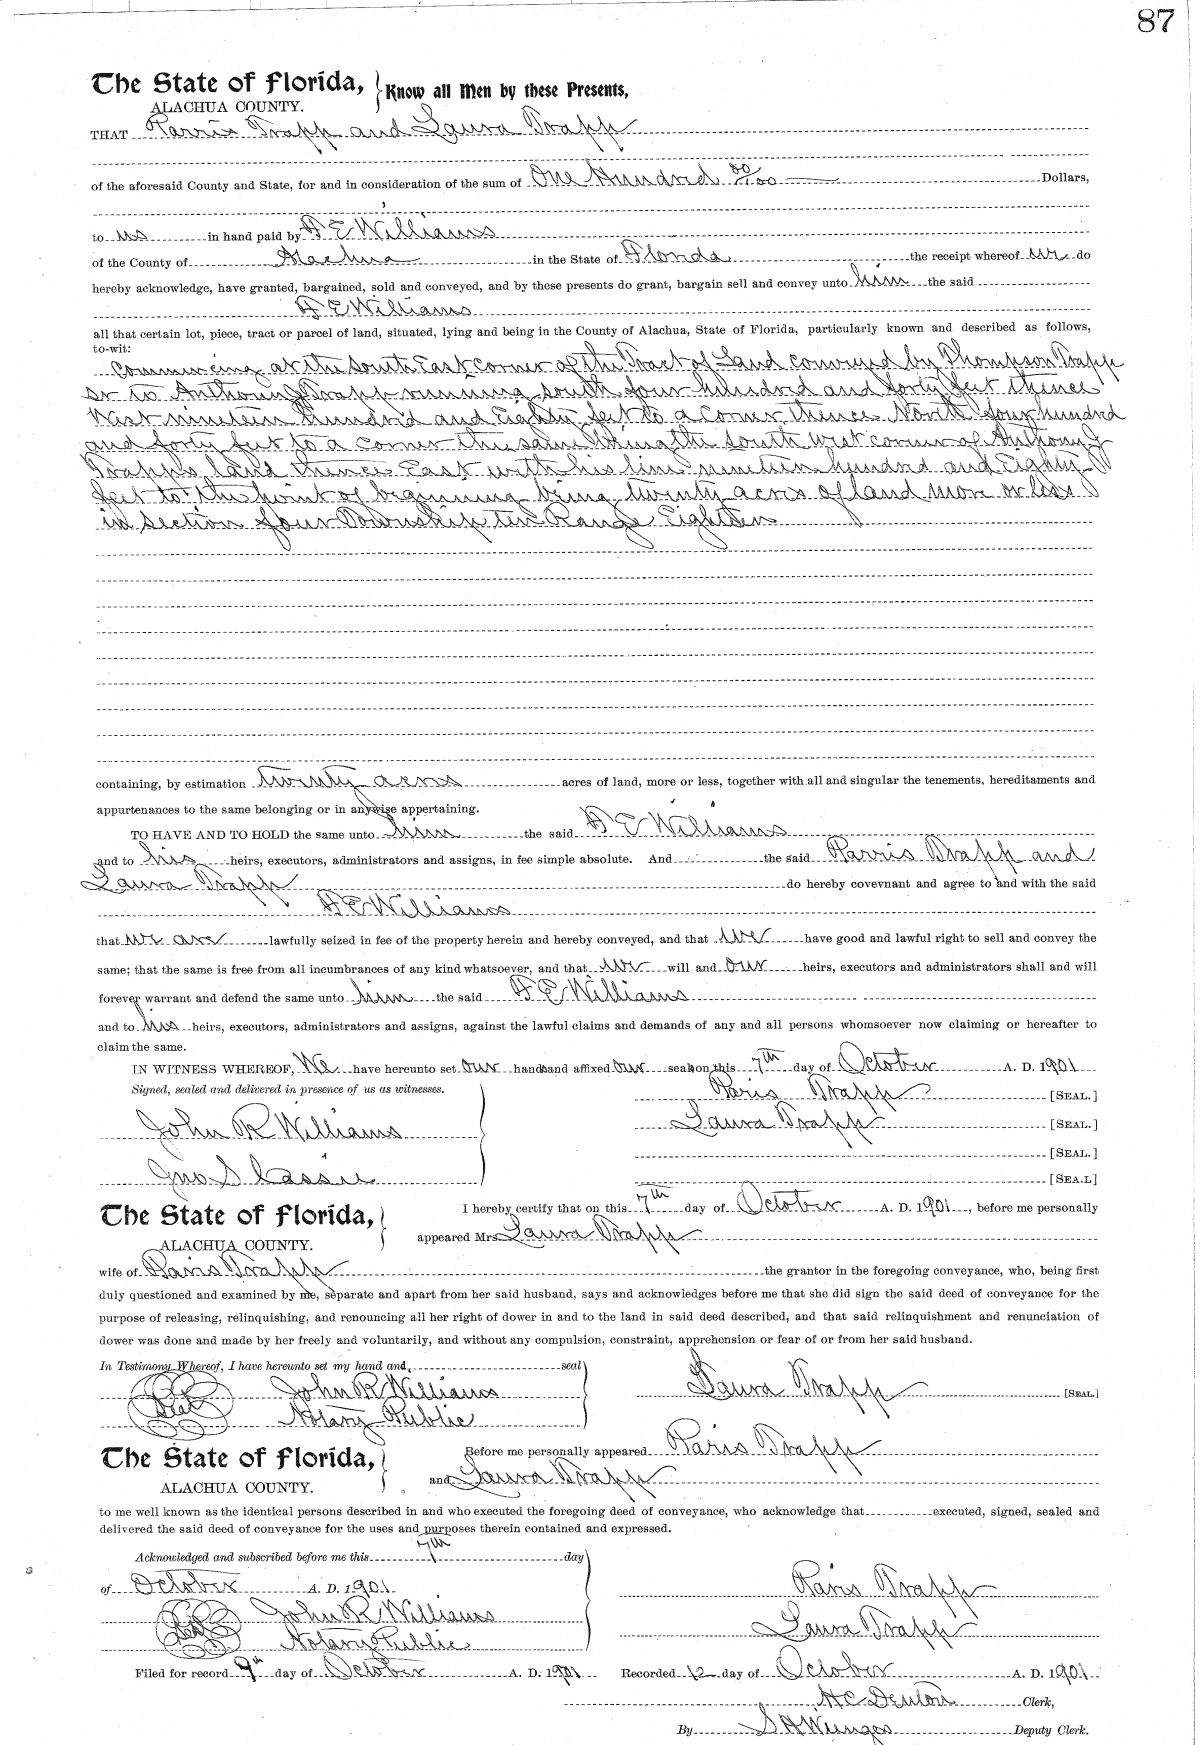 87
The State of Florida, Know all Men by these Presents,
ALACHUA COUNTY.
THAT Parris Trapp and Laura Trapp
of the aforesaid County and State, for and in consideration of the sum of One Hundred 00/100 Dollars,
to us in hand paid by A E Williams
of the County of Alachua in the State of Florida the receipt whereof we do
hereby acknowledge, have granted, bargained, sold and conveyed, and by these presents do grant, bargain sell and convey unto him the said
A E Williams
all that certain lot, piece, tract or parcel of land, situated, lying and being in the County of Alachua, State of Florida, particularly known and described as follows,
to-wit:
Commencing at the South East corner of the Tract of Land conveyed by Thompson Trapp
sr to Anthony J Trapp running south four hundred and forty feet thence
West nineteen hundred and Eighty feet to a corner thence North four hundred
and forty feet to a corner the same being the south west corner of Anthony J
Trapps land thence East with his line nineteen hundred and Eighty
feet to the point of beginning being twenty acres of land more or less
in section four Township ten Range Eighteen
containing, by estimation twenty acres acres of land, more or less, together with all and singular the tenements, hereditaments and
appurtenances to the same belonging or in anywise appertaining.
TO HAVE AND TO HOLD the same unto him the said A E Williams
and to his heirs, executors, administrators and assigns, in fee simple absolute. And the said Parris Trapp and
Laura Trapp do hereby covevnant and agree to and with the said
A E Williams
that we are lawfully seized in fee of the property herein and hereby conveyed, and that we have good and lawful right to sell and convey the
same; that the same is free from all incumbrances of any kind whatsoever, and that we will and our heirs, executors and administrators shall and will
forever warrant and defend the same unto him the said A E Williams
and to his heirs, executors, administrators and assigns, against the lawful claims and demands of any and all persons whomsoever now claiming or hereafter to
claim the same.
IN WITNESS WHEREOF, We have hereunto set our hands and affixed our seals on this 7th day of October A. D. 1901
Signed, sealed and delivered in presence of us as witnesses. Paris Trapp [SEAL.]
John R Williams Laura Trapp [SEAL.]
[SEAL.]
Jno S [SEA.L]
The State of Florida, I hereby certify that on this 7th day of October A. D. 1901, before me personally
ALACHUA COUNTY. appeared Mrs Laura Trapp
wife of Paris Trapp the grantor in the foregoing conveyance, who, being first
duly questioned and examined by me, separate and apart from her said husband, says and acknowledges before me that she did sign the said deed of conveyance for the
purpose of releasing, relinquishing, and renouncing all her right of dower in and to the land in said deed described, and that said relinquishment and renunciation of
dower was done and made by her freely and voluntarily, and without any compulsion, constraint, apprehension or fear of or from her said husband.
In Testimony Whereof, I have hereunto set my hand and seal
Seal John R Williams Laura Trapp [SEAL.]
Notary Public
The State of Florida, Before me personally appeared Paris Trapp
ALACHUA COUNTY. and Laura Trapp
to me well known as the identical persons described in and who executed the foregoing deed of conveyance, who acknowledge that executed, signed, sealed and
delivered the said deed of conveyance for the uses and purposes therein contained and expressed.
Acknowledged and subscribed before me this 7th day
of October A. D. 1901 Paris Trapp
Seal John R Williams Laura Trapp
Notary Public
Filed for record 9th day of October A. D. 1901 Recorded 12 day of October A. D. 1901
H C Denton Clerk,
By S H Wienges Deputy Clerk.